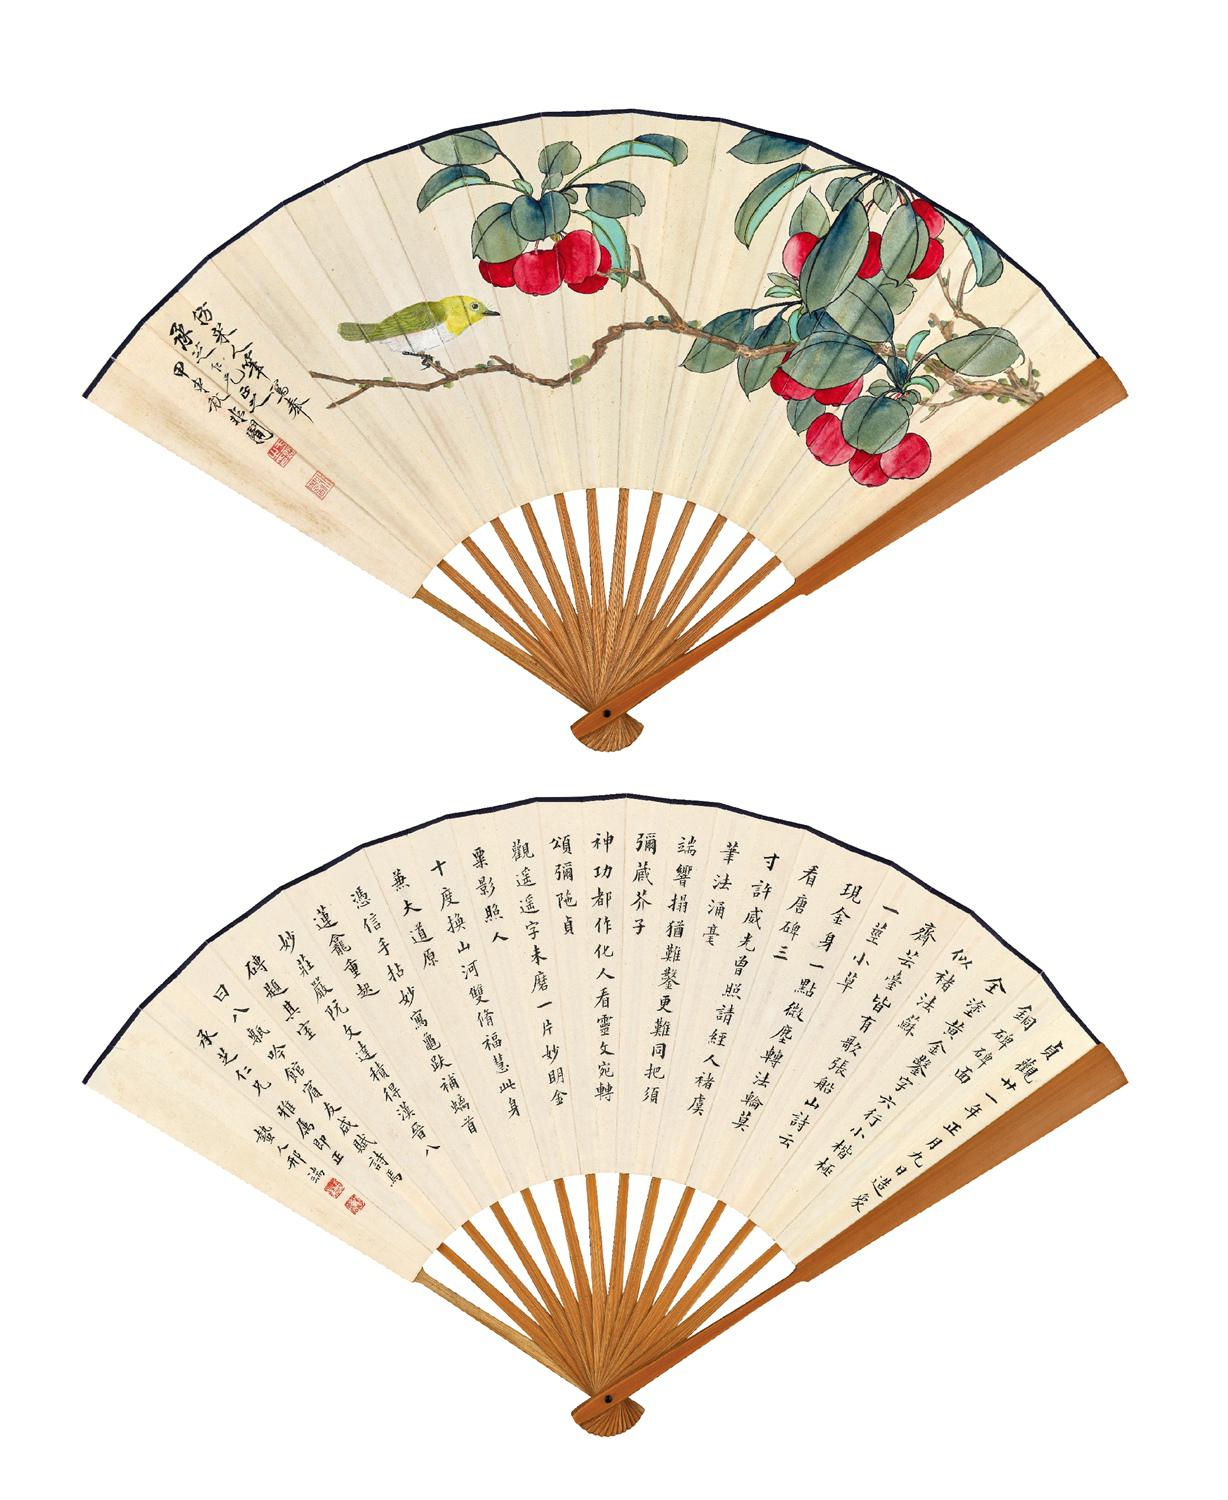 仿宋人筆寫奉
承芝仁兄正之
甲申秋非闇
貞觀廿一年正月九日造象
銅碑碑面
全塗黃金鑿字六行小楷極
似褚法蘇
齋芸臺皆有歌張船山詩云
一莖小草
現金身一點微塵轉法輪莫
看唐碑三
寸許威光曾照請經人褚虞
筆法涌毫
端響搨猶難鑿更難同把須
彌藏芥子
神功都作化人看靈文宛轉
頌彌陁貞
觀遥遥字未磨一片妙明金
粟影照人
十度換山河雙脩福慧此身
兼大道原
憑信手拈妙寫龜趺補螭首
蓮龕重起
妙莊嚴阮文達積得漢晉八
磚題其室
曰八甎吟館賓友咸賦詩焉
承芝仁兄雅屬即正
蟄人邢端